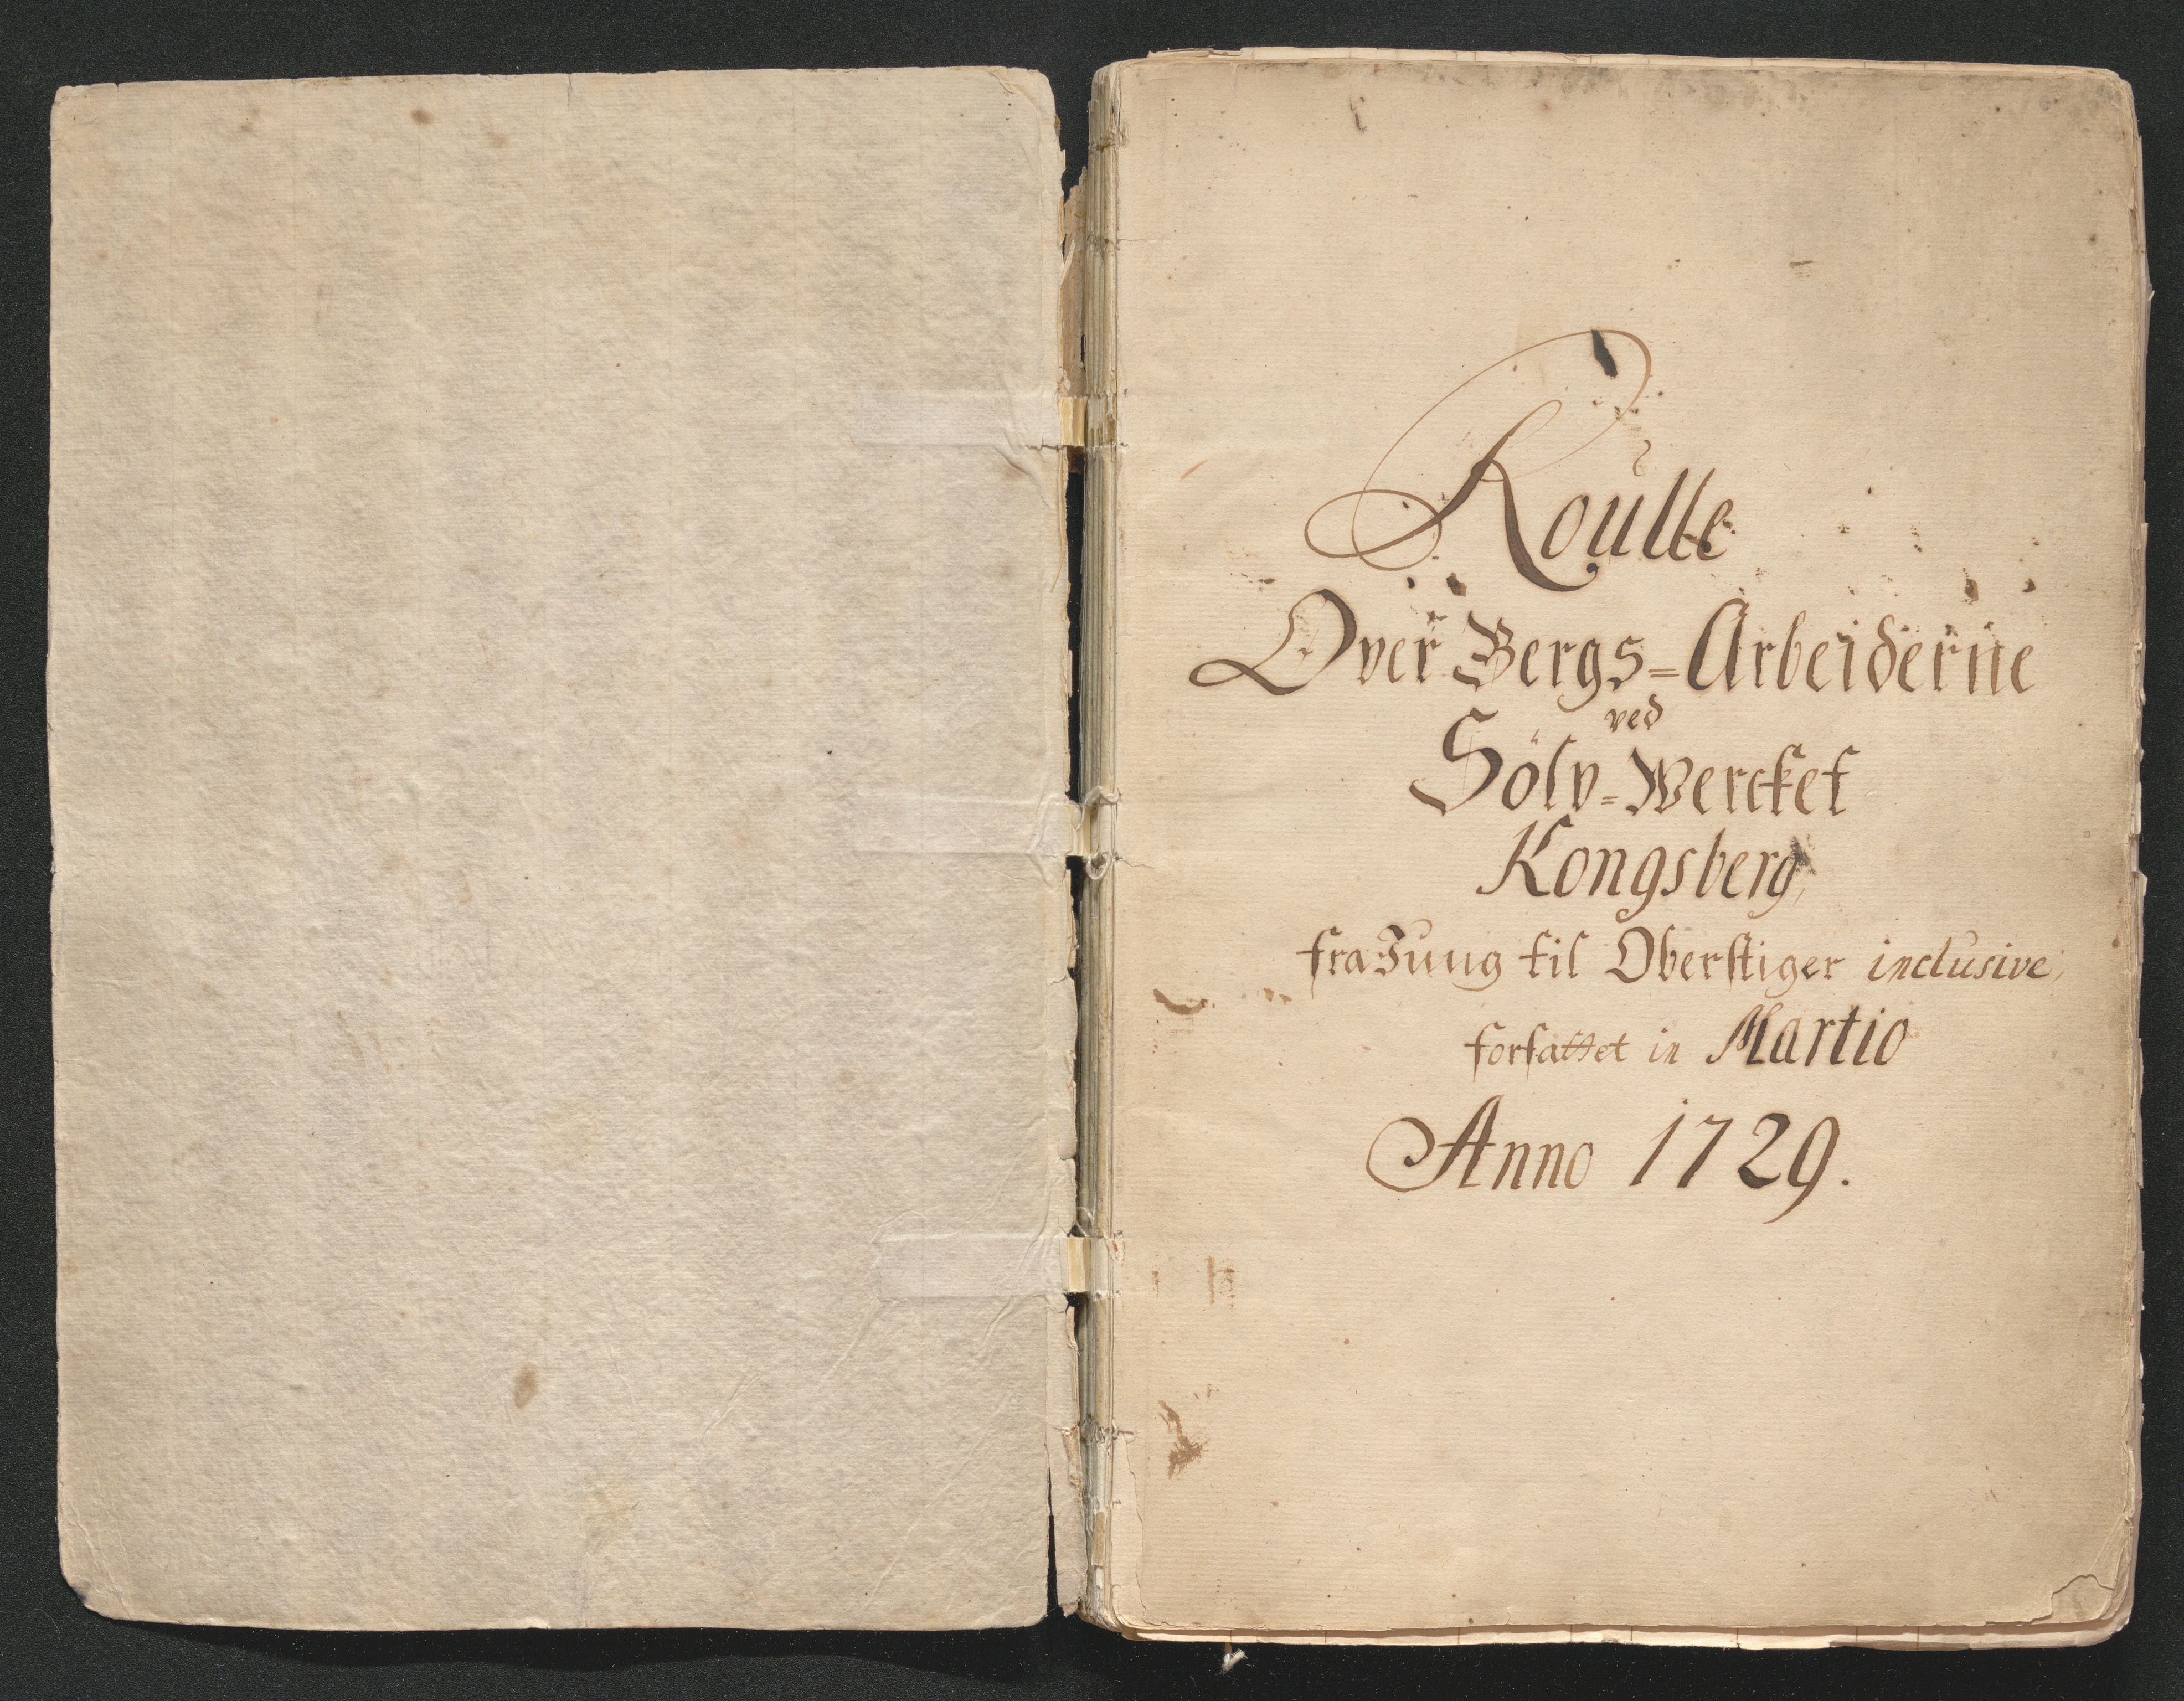 Roulle
Over Bergs=Arbeiderne
ved
Sölv=Wercket
Kongsberg,
fra Jung til Oberstiger inclusive,
forfattet in Martio
Anno 1729.